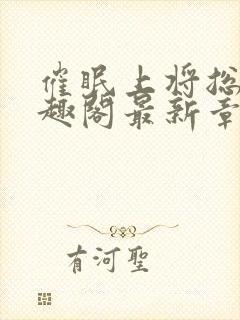 催眠上将总
趣阁最新章
有河聖